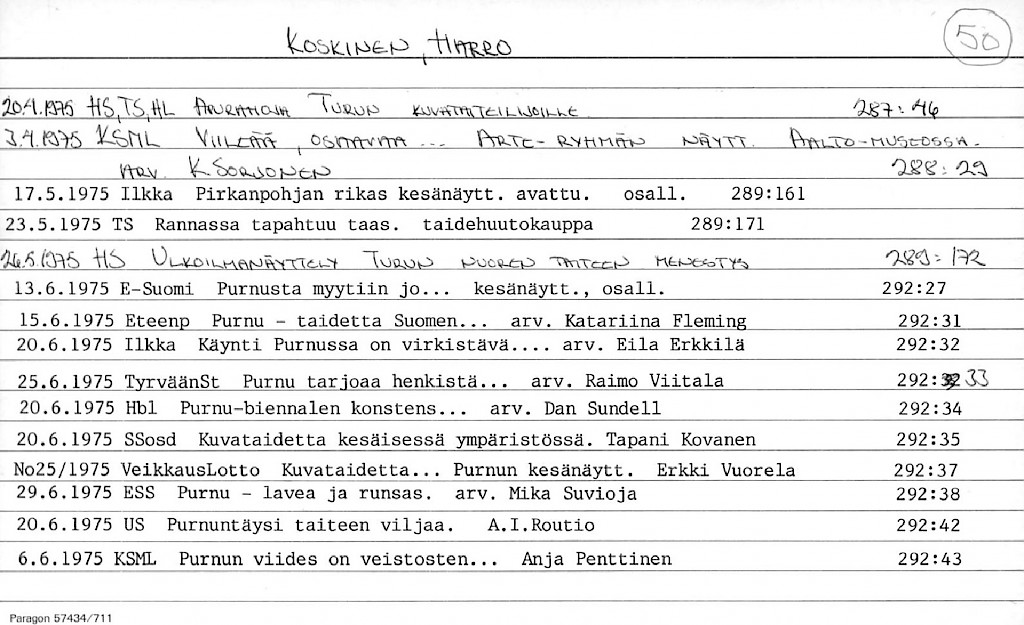 KOSKINEN, HARRO
50
20.4.1975 HS, TS, HL APURAHOJA TURUN KUVATAITEILIJOILLE 287:46
3.4.1975 KSML VIILEÄÄ, OSAAVAA... ARTE-RYHMÄN NÄYTT. AALTO-MUSEOSSA.
ARV. K. SORJONEN 288:29
17.5.1975 Ilkka Pirkanpohjan rikas kesänäytt. avattu. osall. 289:161
23.5.1975 TS Rannassa tapahtuu taas. taidehuutokauppa 289:171
26.5.1975 HS ULKOILMANÄYTTELY TURUN NUOREN TAITEEN MENESTYS 289:172
13.6.1975 E-Suomi Purnusta myytiin jo... kesänäytt., osall. 292:27
15.6.1975 Eteenp Purnu - taidetta Suomen... arv. Katariina Fleming 292:31
20.6.1975 Ilkka Käynti Purnussa on virkistävä.... arv. Eila Erkkilä 292:32
25.6.1975 TyrväänSt Purnu tarjoaa henkistä... arv. Raimo Viitala 292:33
20.6.1975 Hbl Purnu-biennalen konstens... arv. Dan Sundell 292:34
20.6.1975 SSosd Kuvataidetta kesäisessä ympäristössä. Tapani Kovanen 292:35
No25/1975 VeikkausLotto Kuvataidetta... Purnun kesänäytt. Erkki Vuorela 292:37
29.6.1975 ESS Purnu - lavea ja runsas. arv. Mika Suvioja 292:38
20.6.1975 US Purnuntäysi taiteen viljaa. A.I.Routio 292:42
6.6.1975 KSML Purnun viides on veistosten... Anja Penttinen 292:43
Paragon 57434/711